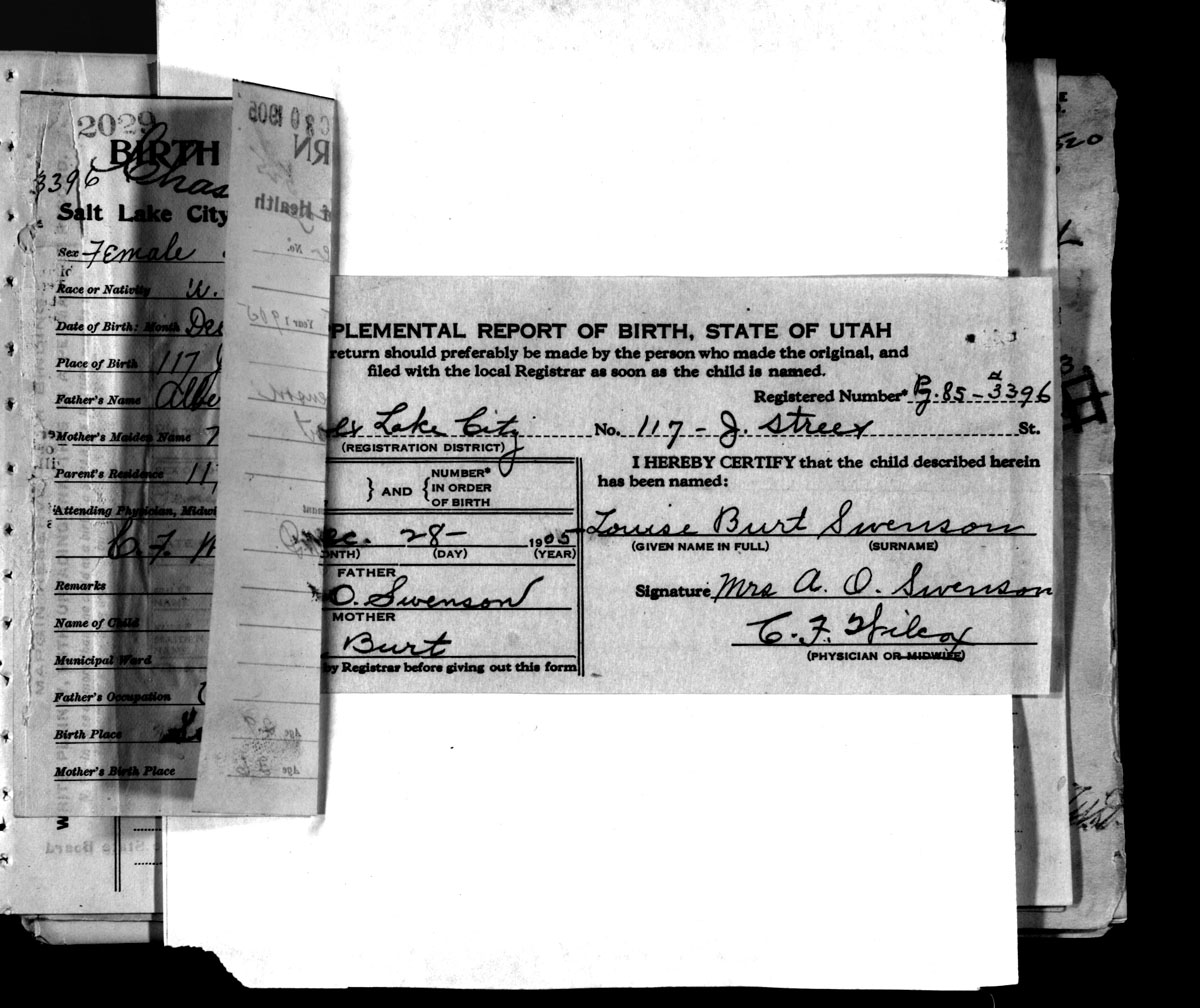 2029
BIRTH
3396 Chas
Salt Lake City
Sex Female
Race or Nativity W.
Date of Birth: Month Dec
Place of Birth 117 J
Father's Name Albe
Mother's Maiden Name
Parent's Residence 117
Attending Physician, Midwi
C. F. W
Remarks
Name of Child
Municipal Ward
Father's Occupation
Birth Place
Mother's Birth Place
C 30 1905
RN
f Health
No.
Year 1905
Age
Age
PLEMENTAL REPORT OF BIRTH, STATE OF UTAH
return should preferably be made by the person who made the original, and
filed with the local Registrar as soon as the child is named.
Registered Number* Pg. 85-a 3396
Lake City No. 117 - J. Street St.
(REGISTRATION DISTRICT)
} AND { NUMBER* IN ORDER OF BIRTH
I HEREBY CERTIFY that the child described herein
has been named:
ec. 28- 1905
NTH) (DAY) (YEAR)
Louise Burt Swenson
(GIVEN NAME IN FULL) (SURNAME)
FATHER
O. Swenson
Signature Mrs A. O. Swenson
MOTHER
Burt
C. F. Wilcox
(PHYSICIAN OR MIDWIFE)
by Registrar before giving out this form